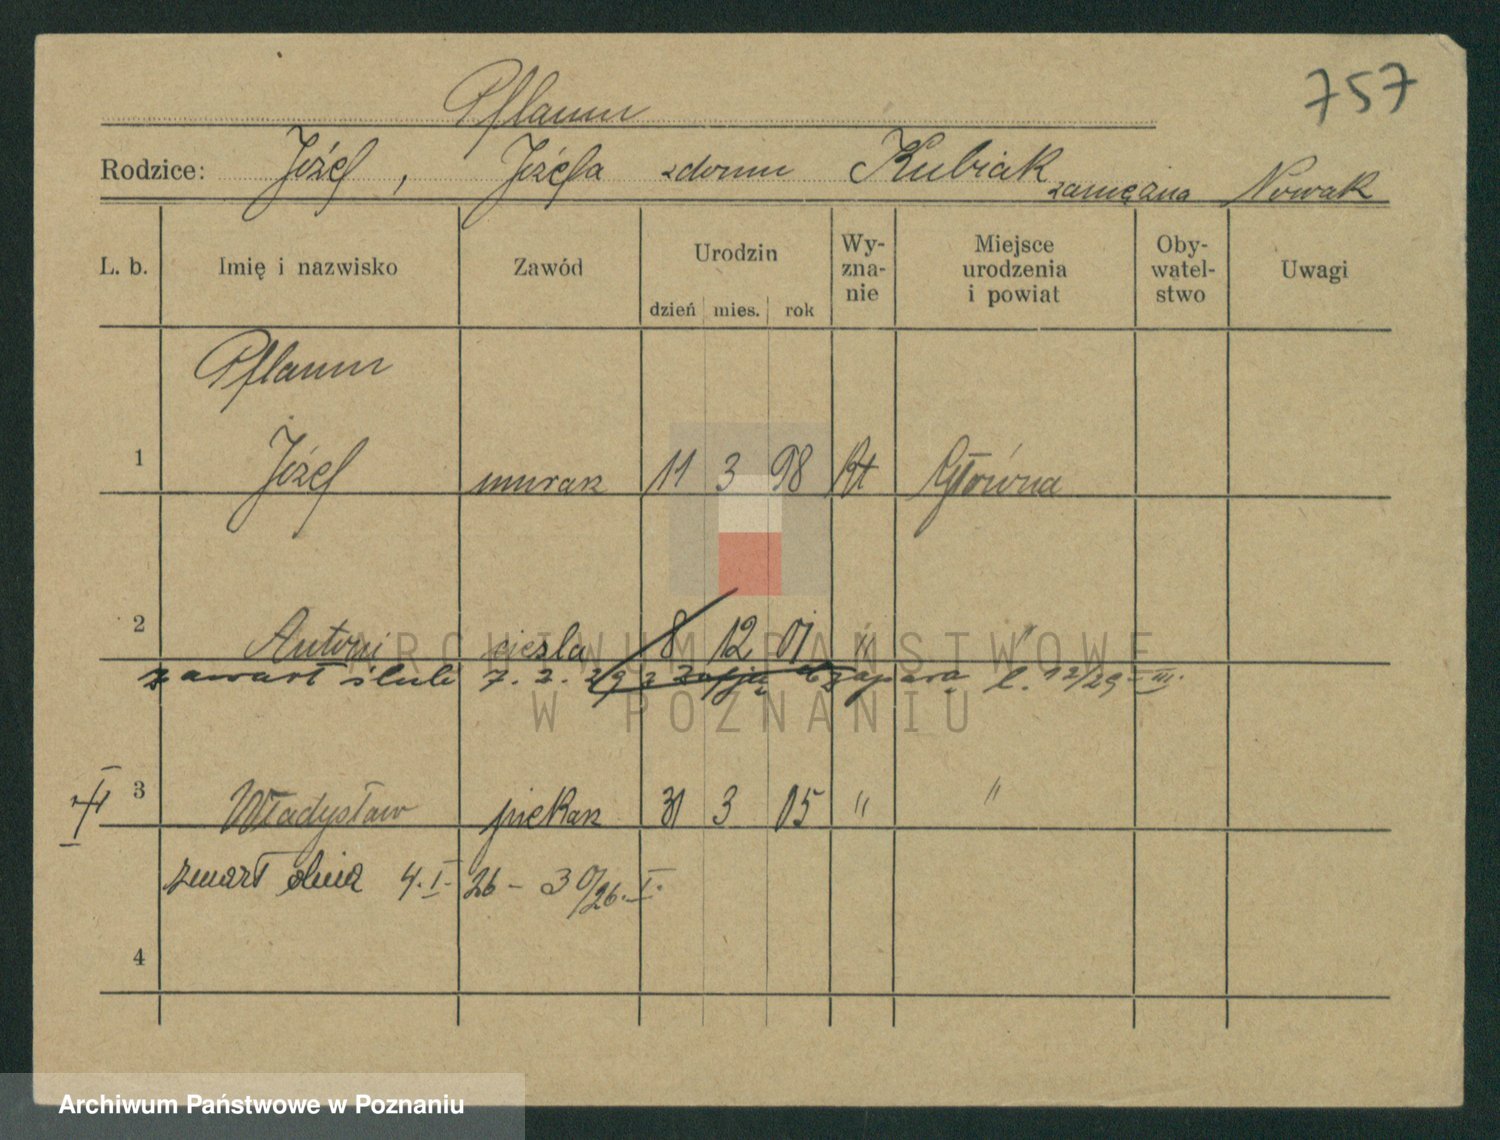 757
Pflaum
Rodzice: Józef, Józefa zdomu Kubiak zamężna Nowak
L. b. Imię i nazwisko Zawód Urodzin dzień mies. rok Wy-zna-nie Miejsce urodzenia i powiat Oby-watel-stwo Uwagi
Pflaum
1 Józef murarz 11 3 98 Rk Główna
2 Antoni ciesla 8 12 01 " "
zawarł ślub 7. 2. 29 z Zofją Czaparą l. 12/29 III.
3 Władysław piekarz 31 3 05 " "
zmarł dnia 4. I. 26 - 30/26. I.
4
ARCHIWUM PAŃSTWOWE
W POZNANIU
Archiwum Państwowe w Poznaniu